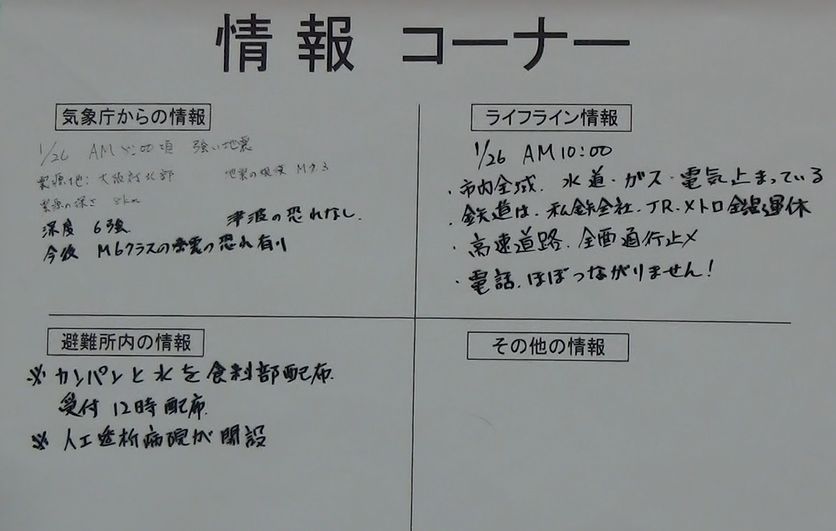 情報 コーナー
気象庁からの情報
1/26 AM :00頃 強い地震
震源地: 大阪府北部 地震の規模 M7.3
震源の深さ 8km
深度 6強 津波の恐れなし.
今後 M6クラスの余震の恐れ有り
ライフライン情報
1/26 AM10:00
・市内全域. 水道・ガス・電気止まっている
・鉄道は. 私鉄会社. JR. メトロ 運休
・高速道路. 全面通行止メ
・電話. ほぼつながりません!
避難所内の情報
※ カンパンと水を食料部配布.
受付 12時配布.
※ 人工透析病院が開設
その他の情報